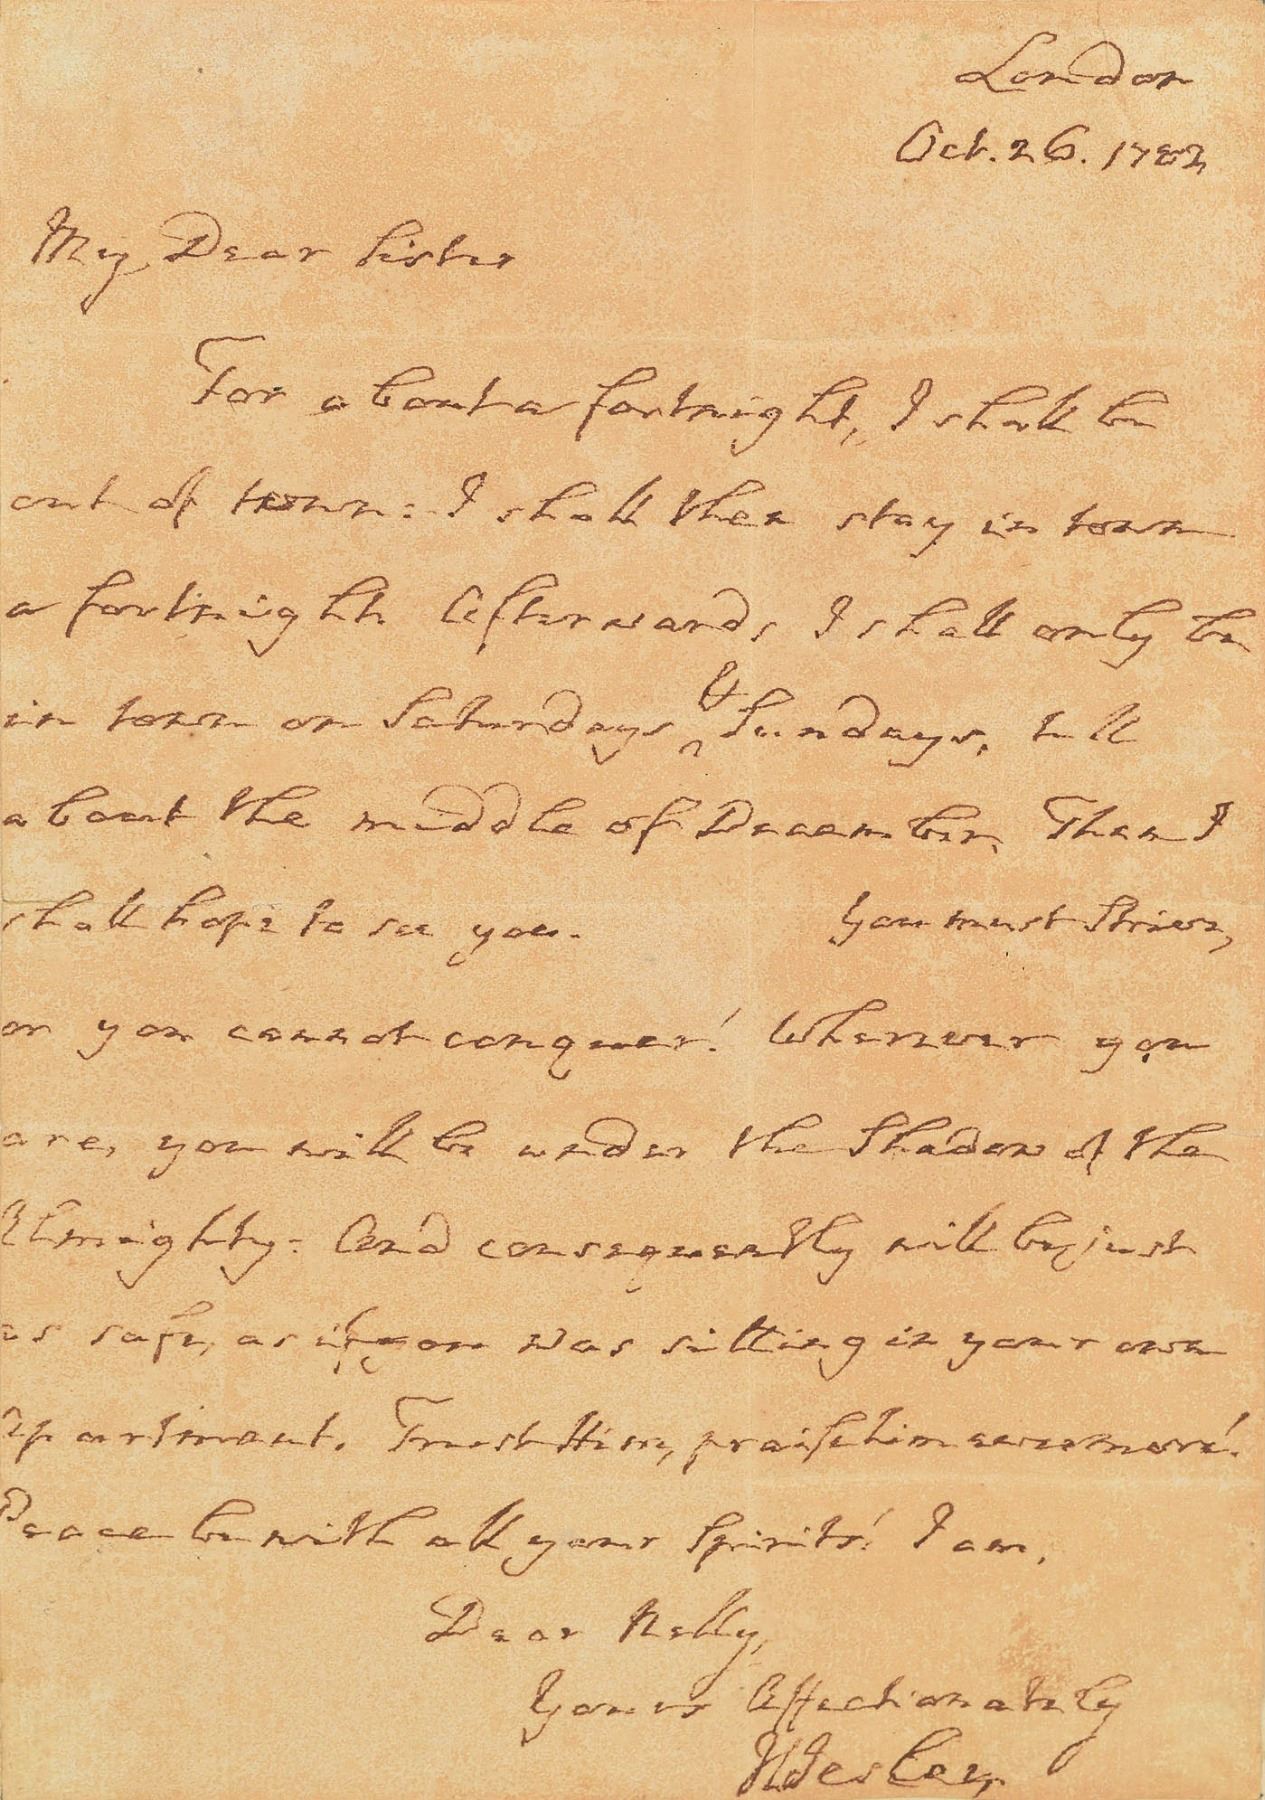 London
Oct. 26. 1782
My Dear Sister
For about a fortnight, I shall be
out of town: I shall then stay in town
a fortnight. Afterwards I shall only be
in town on Saturdays & Sundays, till
about the middle of December. Then I
shall hope to see you. You must Strive,
or you cannot conquer! Wherever you
are, you will be under the Shadow of the
Almighty: And consequently will be just
as safe, as if you was sitting in your own
apartment. Trust Him, praise him evermore!
Peace be with all your Spirits! I am,
Dear Nelly,
Yours Affectionately
JWesley